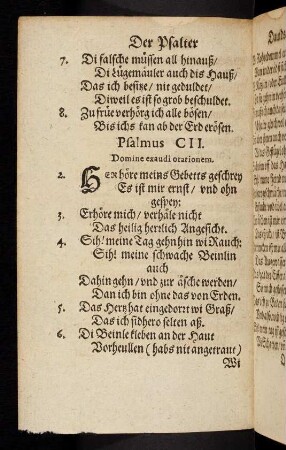 Der Psalter
7. Di falsche müssen all hinauß/
Di Lügemäuler auch dis Hauß/
Das ich besitze/ nit geduldet/
Diweil es ist so grob beschuldet.
8. Zu früe verhörg ich alle bösen/
Bis ichs kan ab der Erd erösen.
Psalmus CII.
Domine exaudi orationem.
2. HErr höre meins Gebetts geschrey
Es ist mir ernst/ vnd ohn
gespey:
3. Erhöre mich/ verhäle nicht
Das heilig herrlich Angesicht.
4. Sih! meine Tag gehn hin wi Rauch:
Sih! meine schwache Beinlin
auch
Dahin gehn/ vnd zur äsche werden/
Dan ich bin ohne das von Erden.
5. Das Hertz hat eingedorrt wi Graß/
Das ich sidhero selten aß.
6. Di Beinle kleben an der Haut
Vor heullen (habs nit angetraut)
Wi